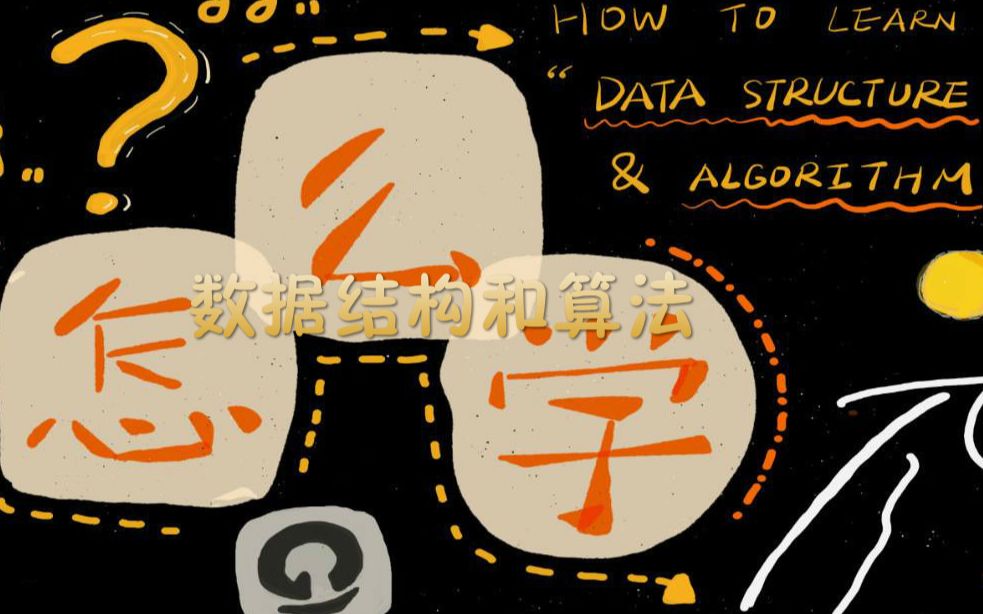 HOW TO LEARN
“ DATA STRUCTURE
& ALGORITHM
怎么学
数据结构和算法